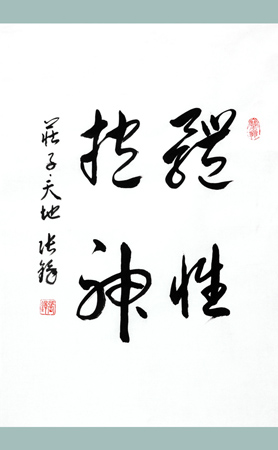 體性
抱神
莊子天地 張